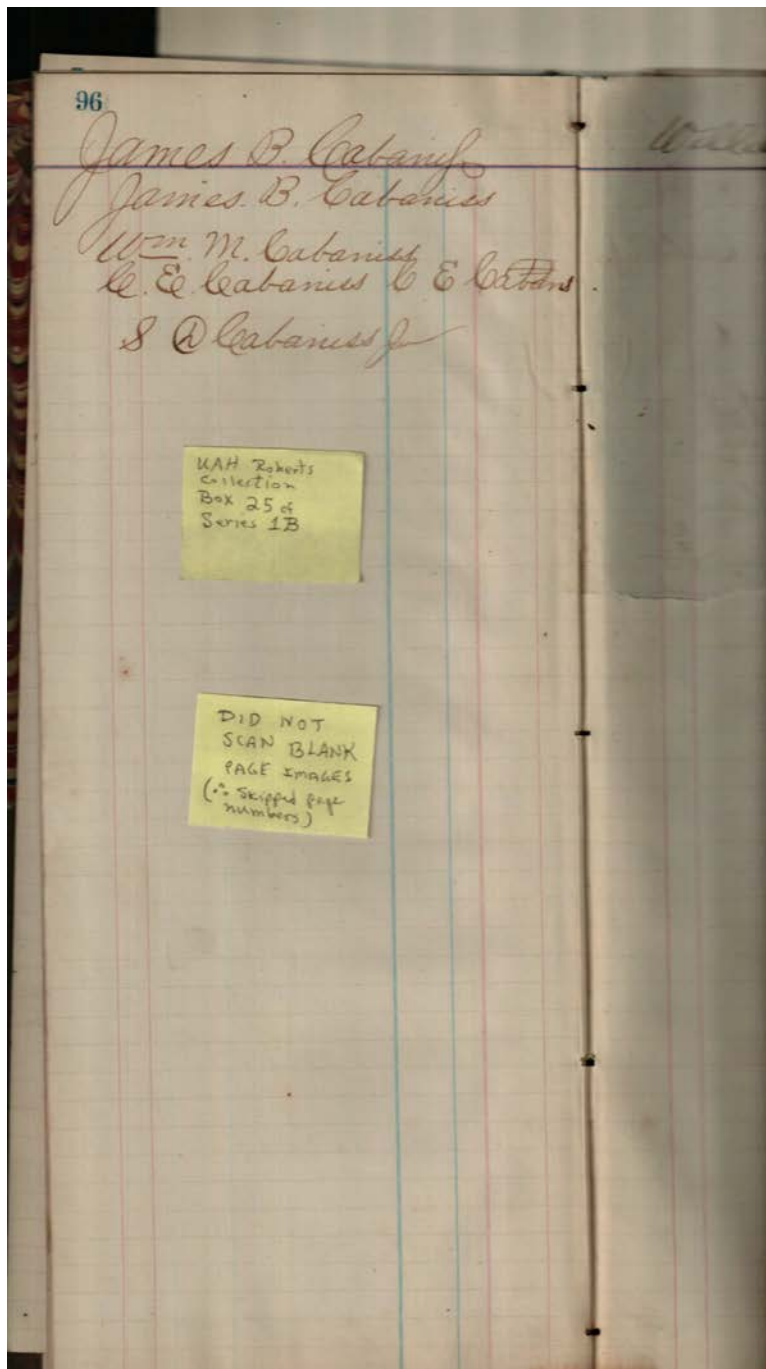 96
James B. Cabaniss
James. B. Cabaniss
Wm. M. Cabaniss
C. E. Cabaniss C E Cabans.
S D Cabaniss Jr
UAH Roberts
Collection
Box 25 of
Series 1B
DID NOT
SCAN BLANK
PAGE IMAGES
(∴ Skipped page
numbers)